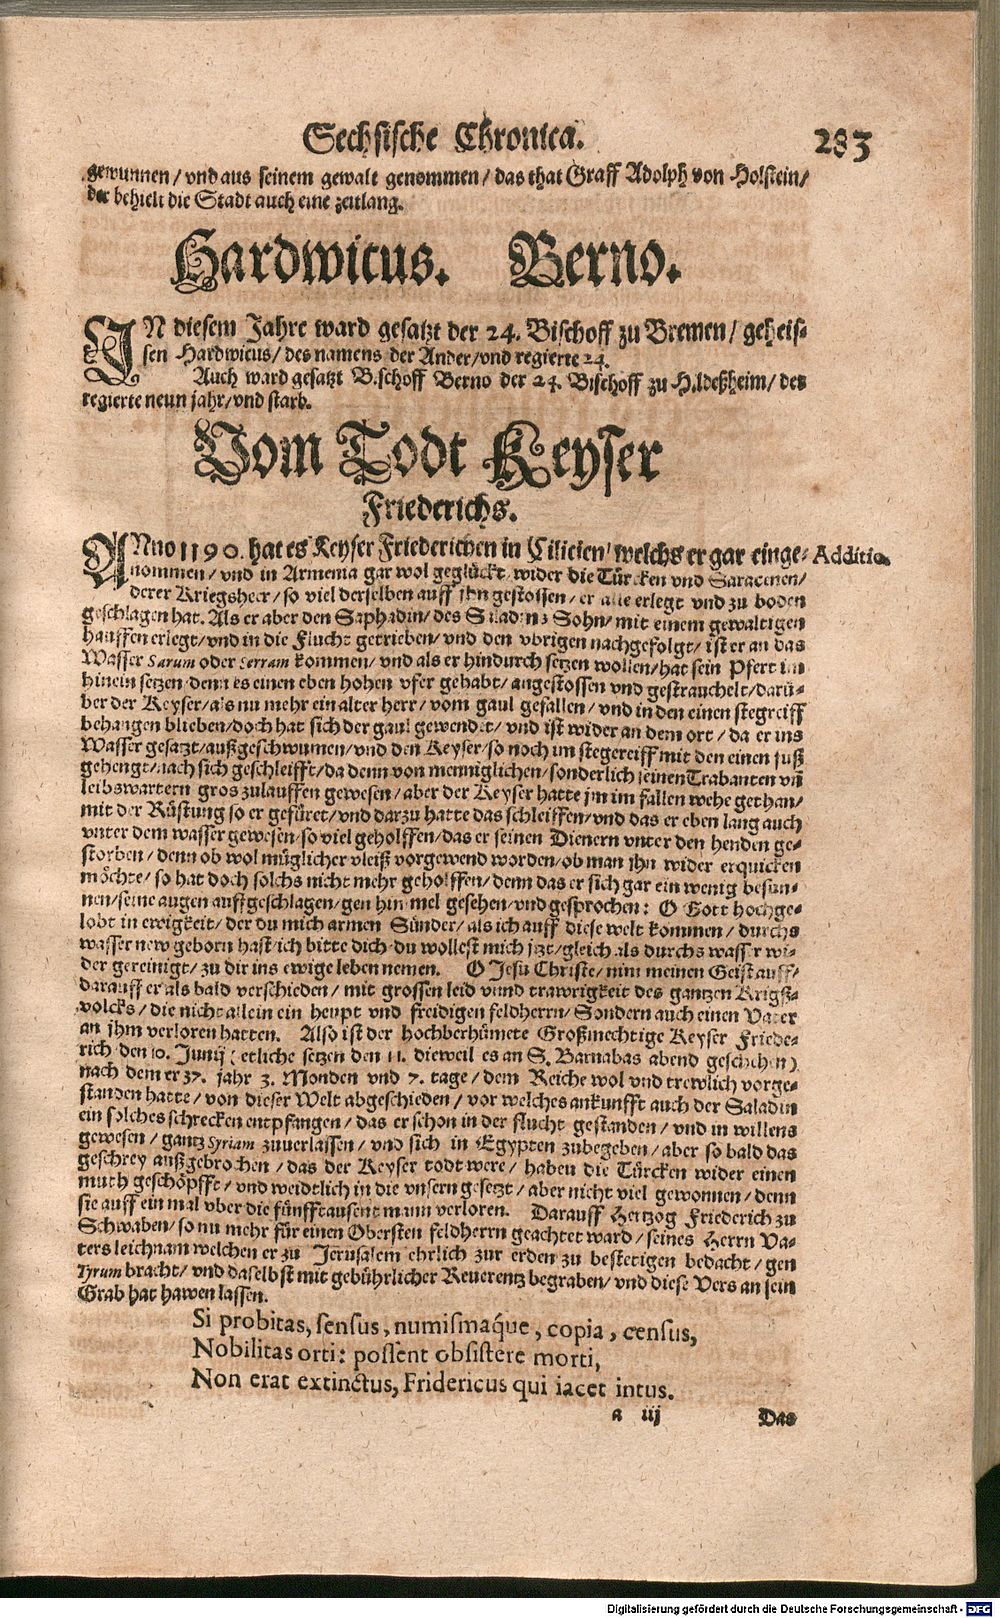 Sechsische Chronica. 283
gewunnen / vnd aus seinem gewalt genommen / das that Graff Adolph von Holstein /
der behielt die Stadt auch eine zeitlang.
Hardwicus. Berno.
IN diesem Jahre ward gesatzt der 24. Bischoff zu Bremen / geheis-
sen Hardwicus / des namens der Ander / vnd regierte 24.
Auch ward gesatzt Bischoff Berno der 24. Bischoff zu Hildeßheim / der
regierte neun jahr / vnd starb.
Vom Todt Keyser
Friederichs.
ANno 1190. hat es Keyser Friederichen in Cilicien / welchs er gar einge-
Additio.
nommen / vnd in Armenia gar wol geglückt / wider die Türcken vnd Saracenen /
derer Kriegsheer / so viel derselben auff jhn gestossen / er alle erlegt vnd zu boden
geschlagen hat. Als er aber den Saphadin / des Saladins Sohn / mit einem gewaltigen
hauffen erlegt / vnd in die Flucht getrieben / vnd den vbrigen nachgefolgt / ist er an das
Wasser Sarum oder Serram kommen / vnd als er hindurch setzen wollen / hat sein Pfert im
hinein setzen / denn es einen eben hohen vfer gehabt / angestossen vnd gestrauchelt / darü-
ber der Keyser / als nu mehr ein alter herr / vom gaul gefallen / vnd in den einen stegreiff
behangen blieben / doch hat sich der gaul gewendet / vnd ist wider an dem ort / da er ins
Wasser gesatzt / außgeschwumen / vnd den Keyser / so noch im stegereiff mit den einen fuß
gehengt / nach sich geschleifft / da denn von menniglichen / sonderlich seinen Trabanten vñ
leibswartern gros zulauffen gewesen / aber der Keyser hatte jm im fallen wehe gethan /
mit der Rüstung so er gefüret / vnd darzu hatte das schleiffen / vnd das er eben lang auch
vnter dem wasser gewesen / so viel geholffen / das er seinen Dienern vnter den henden ge-
storben / denn ob wol müglicher vleiß vorgewend worden / ob man jhn wider erquicken
möchte / so hat doch solchs nicht mehr geholffen / denn das er sich gar ein wenig besun-
nen / seine augen auffgeschlagen / gen himmel gesehen / vnd gesprochen: O Gott hochge-
lobt in ewigkeit / der du mich armen Sünder / als ich auff diese welt kommen / durchs
wasser new geborn hast / ich bitte dich / du wollest mich jtzt / gleich als durchs wasser wi-
der gereinigt / zu dir ins ewige leben nemen. O Jesu Christe / nim meinen Geist auff /
darauff er als bald verschieden / mit grossen leid vnnd trawrigkeit des gantzen Krigß-
volcks / die nicht allein ein heupt vnd freidigen feldherrn / Sondern auch einen Vater
an jhm verloren hatten. Also ist der hochberhümete Großmechtige Keyser Friede-
rich den 10. Junij (etliche setzen den 11. dieweil es an S. Barnabas abend geschehen)
nach dem er 37. jahr 3. Monden vnd 7. tage / dem Reiche wol vnd trewlich vorge-
standen hatte / von dieser Welt abgeschieden / vor welches ankunfft auch der Saladin
ein solches schrecken entpfangen / das er schon in der flucht gestanden / vnd in willens
gewesen / gantz Syriam zuverlassen / vnd sich in Egypten zubegeben / aber so bald das
geschrey außgebrochen / das der Keyser todt were / haben die Türcken wider einen
muth geschöpfft / vnd weidtlich in die vnsern gesetzt / aber nicht viel gewonnen / denn
sie auff ein mal vber die fünfftausent mann verloren. Darauff Hertzog Friederich zu
Schwaben / so nu mehr für einen Obersten feldherrn geachtet ward / seines Herrn Va-
ters leichnam welchen er zu Jerusalem ehrlich zur erden zu bestetigen bedacht / gen
Tyrum bracht / vnd daselbst mit gebührlicher Reuerentz begraben / vnd diese Vers an sein
Grab hat hawen lassen.
Si probitas, sensus, numismáque, copia, census,
Nobilitas orti: possent obsistere morti,
Non erat extinctus, Fridericus qui iacet intus.
a iij Das
Digitalisierung gefördert durch die Deutsche Forschungsgemeinschaft - DFG